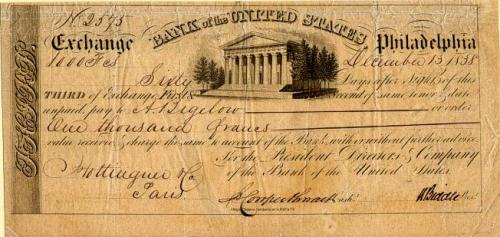 No 2595
BANK of the UNITED STATES,
Exchange Philadelphia
1000 Fcs December 13, 1838
Sixty Days after Sight of this
THIRD of Exchange First & Second of same tenor & date
unpaid, pay to A. Bigelow or order
One thousand francs
value received & charge the same to account of the Bank, with or without further advice
For the President Directors & Company
of the Bank of the United States.
Hottinguer & Co
Paris
Cash. N Biddle Pres.